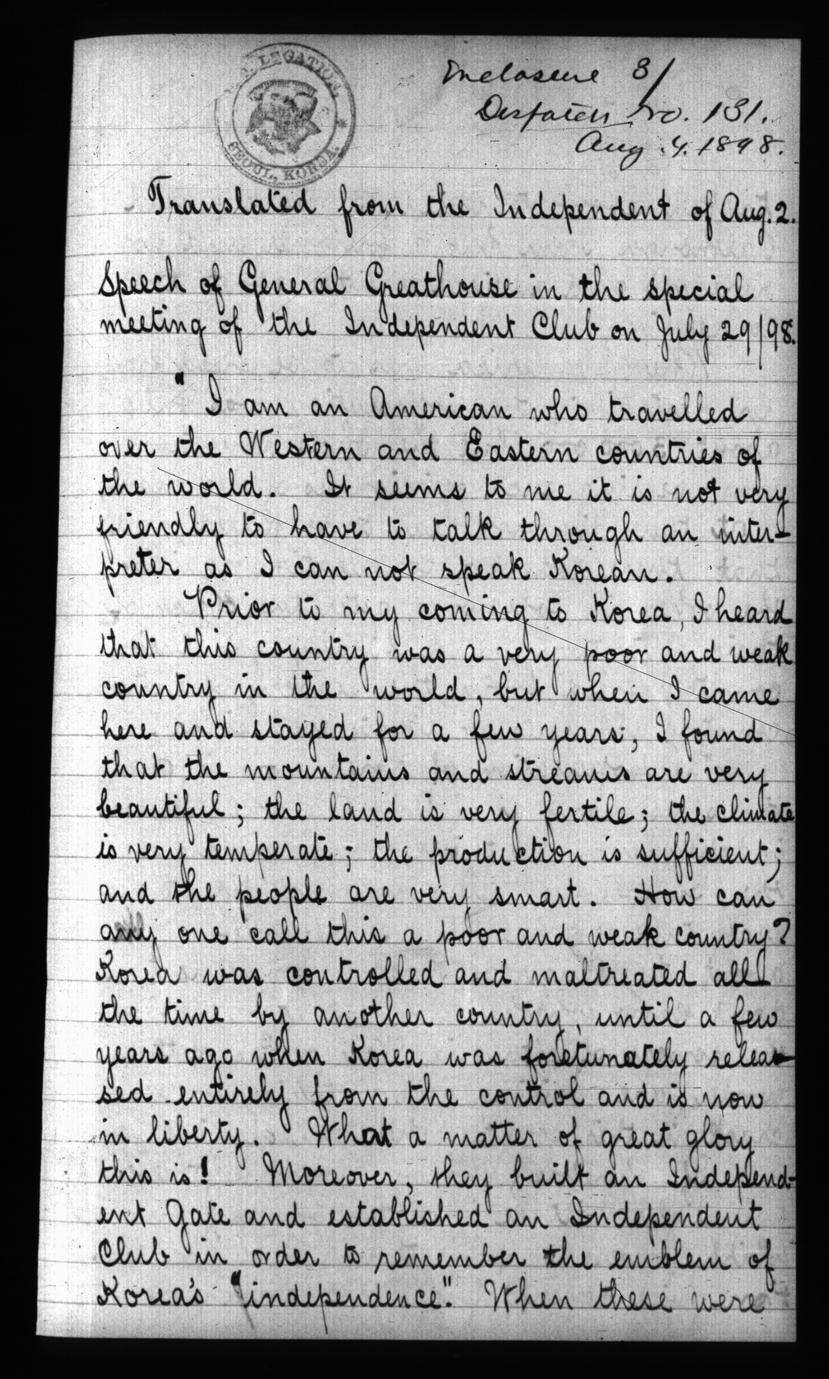 LEGATION,
SEOUL, KOREA.
Enclosure 3/
Dispatch no. 131.
Aug. 4. 1898.
Translated from the Independent of Aug. 2.
Speech of General Greathouse in the special
meeting of the Independent Club on July 29/98.
" I am an American who travelled
over the Western and Eastern countries of
the world. It seems to me it is not very
friendly to have to talk through an inter-
preter as I can not speak Korean.
Prior to my coming to Korea, I heard
that this country was a very poor and weak
country in the world, but when I came
here and stayed for a few years, I found
that the mountains and streams are very
beautiful; the land is very fertile; the climate
is very temperate; the production is sufficient;
and the people are very smart. How can
any one call this a poor and weak country?
Korea was controlled and maltreated all
the time by another country, until a few
years ago when Korea was foretunately relea-
sed entirely from the control and is now
in liberty. What a matter of great glory
this is! Moreover, they built an Independ-
ent Gate and established an Independent
Club in order to remember the emblem of
Korea's "independence". When these were